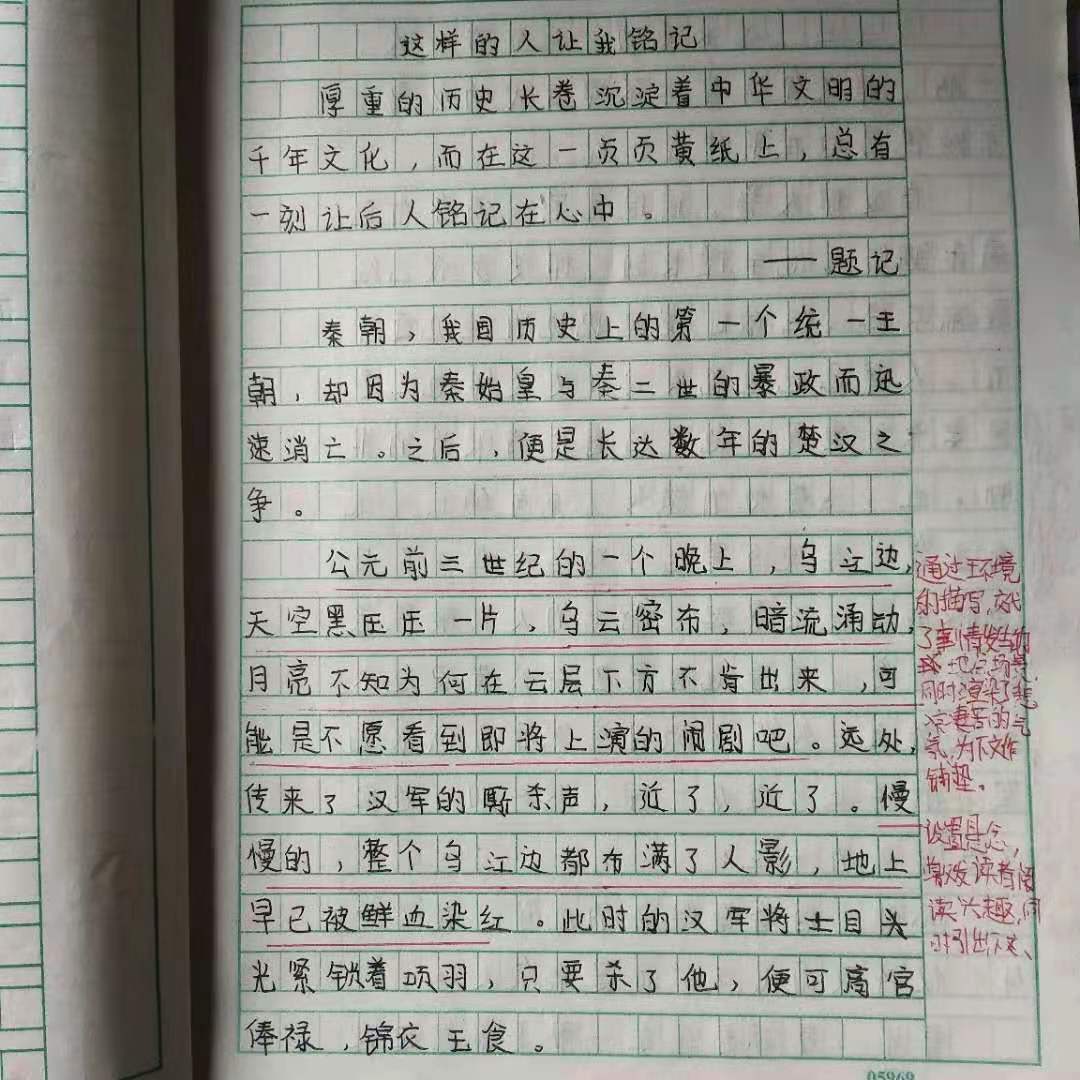 这样的人让我铭记
厚重的历史长卷沉淀着中华文明的
千年文化，而在这一页页黄纸上，总有
一刻让后人铭记在心中。
——题记
秦朝，我国历史上的第一个统一王
朝，却因为秦始皇与秦二世的暴政而迅
速消亡。之后，便是长达数年的楚汉之
争。
公元前三世纪的一个晚上，乌江边，
天空黑压压一片，乌云密布，暗流涌动，
月亮不知为何在云层下方不肯出来，可
能是不愿看到即将上演的闹剧吧。远处，
传来了汉军的厮杀声，近了，近了。慢
慢的，整个乌江边都布满了人影，地上
早已被鲜血染红。此时的汉军将士目
光紧锁着项羽，只要杀了他，便可高官
俸禄，锦衣玉食。
通过环境
的描写，交代
了事情发生的
地点场景，
同时渲染了悲
凉凄苦的气
氛，为下文作
铺垫。
设置悬念，
激发读者阅
读兴趣，同
时引出下文、
05969